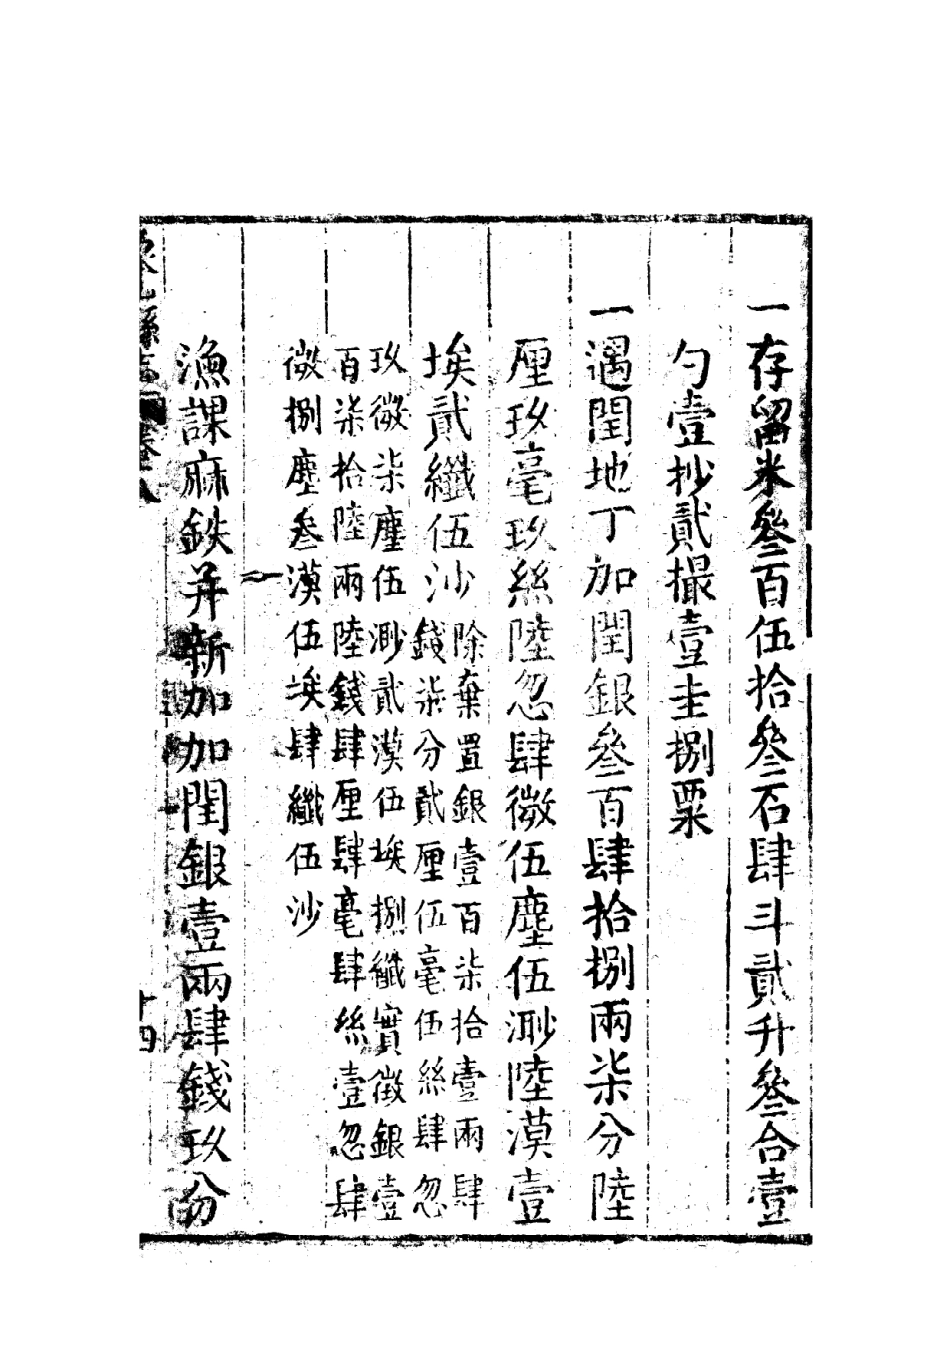 一存留米叄百伍拾叄石肆斗貳升叄合壹
勺壹抄貳撮壹圭捌粟
一遇閏地丁加閏銀叄百肆拾捌兩柒分陸
厘玖毫玖絲陸忽肆微伍塵伍渺陸漠壹
埃貳纖伍沙
除棄置銀壹百柒拾壹兩肆
錢柒分貳厘伍毫伍絲肆忽
玖微柒塵伍渺貳漠伍埃捌纖實徵銀壹
百柒拾陸兩陸錢肆厘肆毫肆絲壹忽肆
微捌塵叁漠伍埃肆纖伍沙
一
漁課麻鉄并新加加閏銀壹兩肆錢玖分
山縣志
卷八
十四